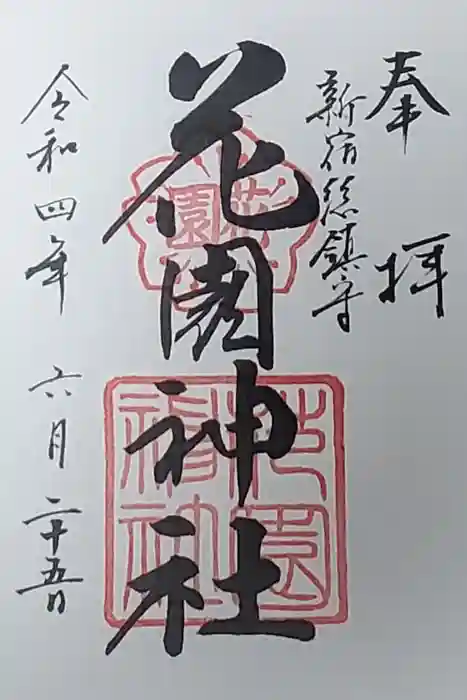 奉拝
新宿総鎮守
花園神社
花園
令和四年六月二十五日